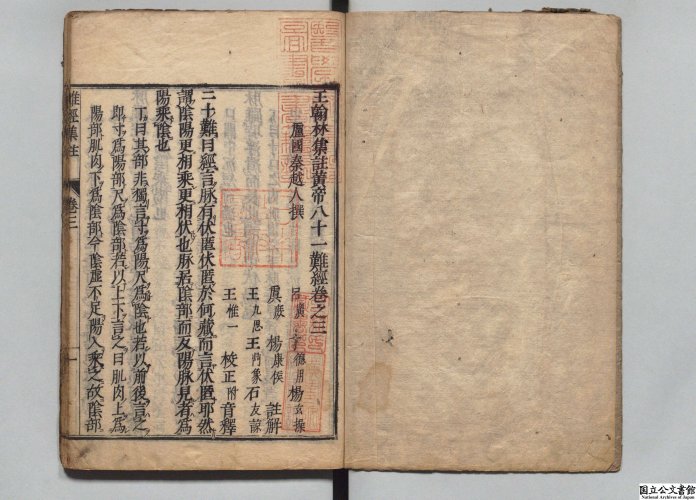 王翰林集註黄帝八十一難經卷之三
盧國秦越人撰
呂廣 丁德用 楊玄操
虞庶 楊康侯 註解
王九思 王鼎象 石友諒
王惟一 校正附音釋
二十難曰經言脉有伏匿伏匿於何藏而言伏匿耶然
謂陰陽更相乘更相伏也脉居陰部而反陽脉見者爲
陽乘陰也
丁曰其部非獨言寸爲陽尺爲陰也若以前後言之
即寸爲陽部尺爲陰部若以上下言之曰肌肉上爲
陽部肌肉下爲陰部今陰虚不足陽入乘之故陰部
難經集註 卷三 一
国立公文書館
National Archives of Japan